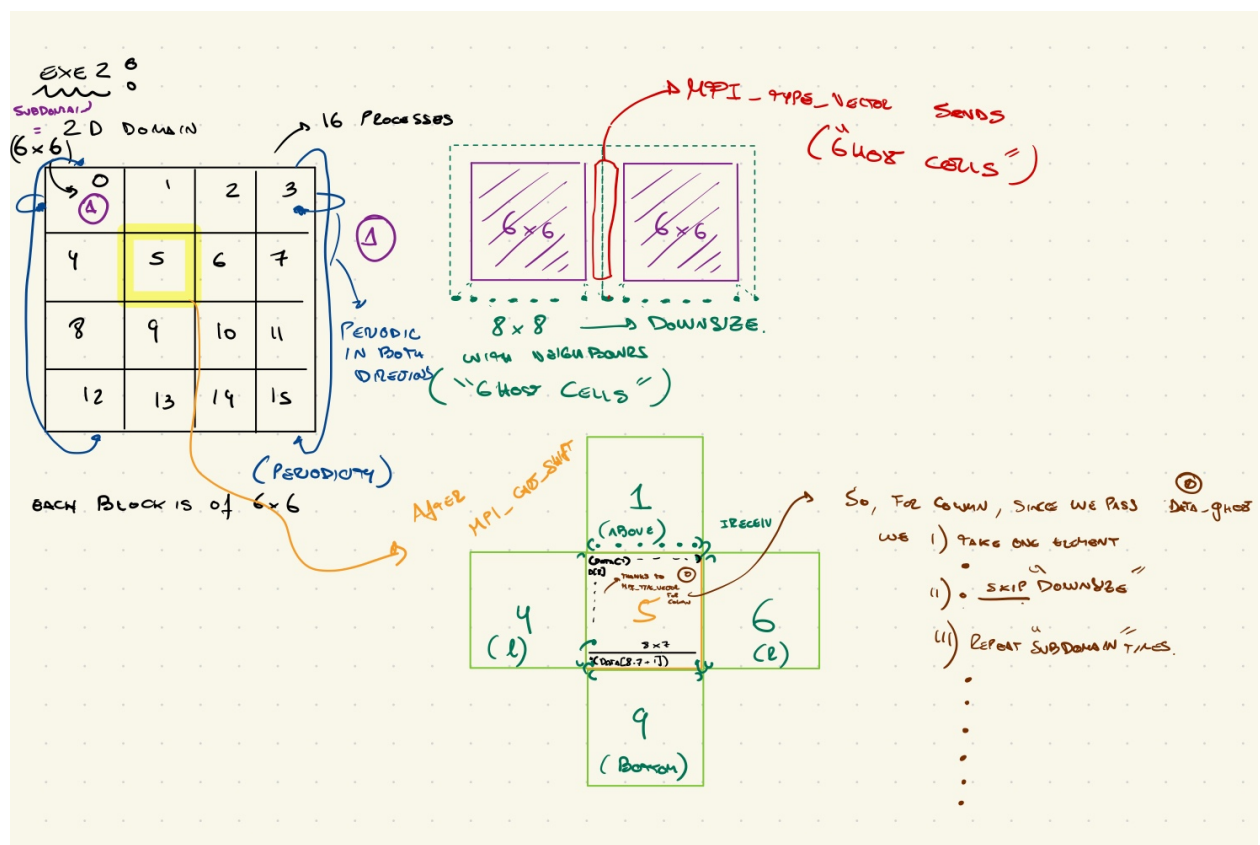 EXE 2 :
SUBDOMAIN
= 2D DOMAIN
(6x6)
16 PROCESSES
0 1 2 3
1
4 5 6 7
8 9 10 11
12 13 14 15
1
PERIODIC
IN BOTH
DIRECTIONS
(PERIODICITY)
EACH BLOCK IS of 6x6
MPI_TYPE_VECTOR SENDS
("GHOST CELLS")
6x6 6x6
8x8 → DOWNSIZE.
WITH NEIGHBOURS
("GHOST CELLS")
AFTER
MPI_CART_SHIFT
1
(ABOVE)
IRECEIV
D[1]
THANKS TO
MPI_TYPE_VECTOR
FOR
COLUMN
0
4
(l)
5
6
(R)
8x7
(DATA[8.7+1])
9
(BOTTOM)
0
SO, FOR COLUMN, SINCE WE PASS DATA_ghost
WE I) TAKE ONE ELEMENT
II) SKIP "DOWNSIZE"
III) REPEAT "SUBDOMAIN" TIMES.